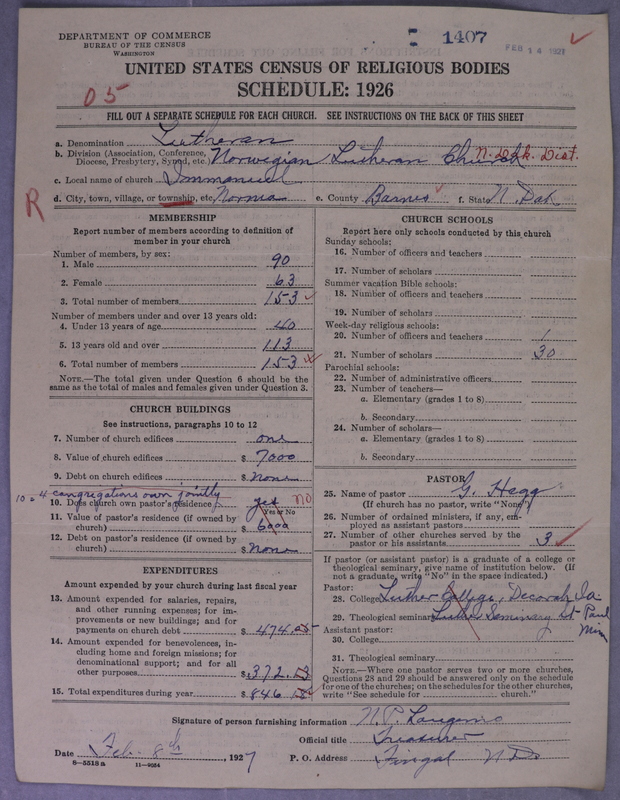 DEPARTMENT OF COMMERCE
BUREAU OF THE CENSUS
WASHINGTON
1407
FEB 14 1927
UNITED STATES CENSUS OF RELIGIOUS BODIES
SCHEDULE: 1926
05
FILL OUT A SEPARATE SCHEDULE FOR EACH CHURCH. SEE INSTRUCTIONS ON THE BACK OF THIS SHEET
a. Denomination Lutheran
b. Division (Association, Conference, Diocese, Presbytery, Synod, etc.) Norwegian Lutheran Church N. Dak. Dist.
c. Local name of church Immanuel
d. City, town, village, or township, etc. Norma e. County Barnes f. State N. Dak
R
MEMBERSHIP
Report number of members according to definition of
member in your church
Number of members, by sex:
1. Male 90
2. Female 63
3. Total number of members 153
Number of members under and over 13 years old:
4. Under 13 years of age 40
5. 13 years old and over 113
6. Total number of members 153
NOTE.—The total given under Question 6 should be the
same as the total of males and females given under Question 3.
CHURCH BUILDINGS
See instructions, paragraphs 10 to 12
7. Number of church edifices one
8. Value of church edifices $ 7000
9. Debt on church edifices $ None
10 = 4 congregations own jointly
10. Does church own pastor's residence? yes no
Yes or No
11. Value of pastor's residence (if owned by
church) $ 6000
12. Debt on pastor's residence (if owned by
church) $ None
EXPENDITURES
Amount expended by your church during last fiscal year
13. Amount expended for salaries, repairs,
and other running expenses; for im-
provements or new buildings; and for
payments on church debt $ 474.05
14. Amount expended for benevolences, in-
cluding home and foreign missions; for
denominational support; and for all
other purposes $ 372.13
15. Total expenditures during year $ 846.18
CHURCH SCHOOLS
Report here only schools conducted by this church
Sunday schools:
16. Number of officers and teachers
17. Number of scholars
Summer vacation Bible schools:
18. Number of officers and teachers
19. Number of scholars
Week-day religious schools:
20. Number of officers and teachers 1
21. Number of scholars 30
Parochial schools:
22. Number of administrative officers
23. Number of teachers—
a. Elementary (grades 1 to 8)
b. Secondary
24. Number of scholars—
a. Elementary (grades 1 to 8)
b. Secondary
PASTOR
25. Name of pastor G. Hegg
(If church has no pastor, write "None")
26. Number of ordained ministers, if any, em-
ployed as assistant pastors
27. Number of other churches served by the
pastor or his assistants 3
If pastor (or assistant pastor) is a graduate of a college or
theological seminary, give name of institution below. (If
not a graduate, write "No" in the space indicated.)
Pastor:
28. College Luther College, Decorah Ia.
29. Theological seminary Luther Seminary St Paul Minn
Assistant pastor:
30. College
31. Theological seminary
NOTE.—Where one pastor serves two or more churches,
Questions 28 and 29 should be answered only on the schedule
for one of the churches; on the schedules for the other churches,
write "See schedule for church."
Signature of person furnishing information N.P.
Official title Treasurer
Date Feb. 8th, 1927 P. O. Address Fingal N.D.
8—5518a 11—9054